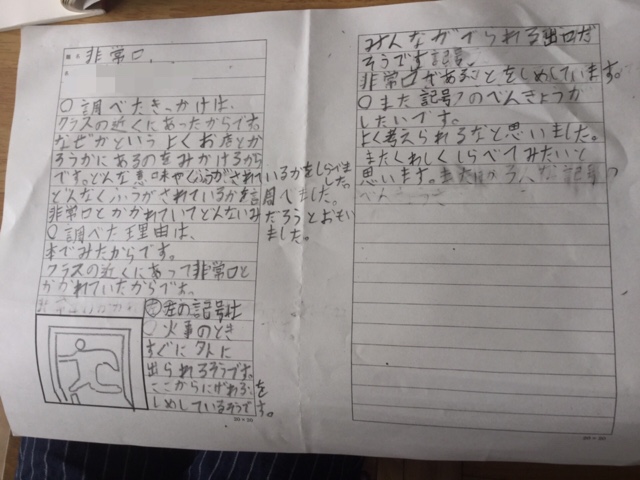 題名 非常口
○調べたきっかけは、
クラスの近くにあったからです。
なぜかというとよくお店とか
ろうかにあるのをみかけるから
です。どんな意味やくふうがされているかをしらべました。
どんなくふうがされているかを調べました。
非常口とかかれていてどんないみだろうとおもいました。
○調べた理由は、
本でみたからです。
クラスの近くにあって非常口と
かかれていたからです。
左の記号は
○火事のとき
すぐに外に
出られるそうです。
ここからにげれるを
しめしているそうです。
みんながでられる出口だ
そうです
非常口があることをしめしています。
○また記号のべんきょうが
したいです。
よく考えられるなと思いました。
またくわしくしらべてみたいと
思います。